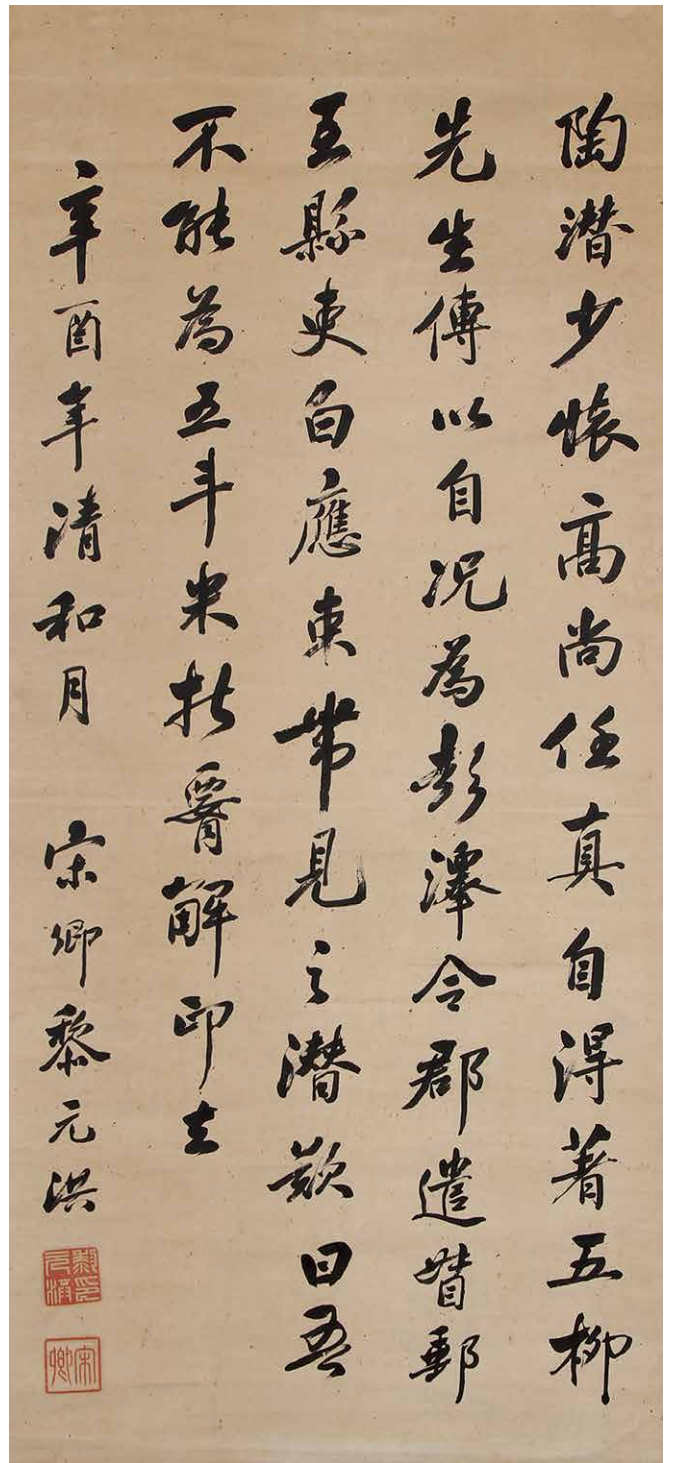 陶潜少懷高尚任真自得著五柳
先生傳以自况為彭澤令郡遣督郵
至縣吏白應束帶見之潜歎曰吾
不能為五斗米折腰解印去
辛酉年清和月 宋卿黎元洪
黎印元洪
宋卿